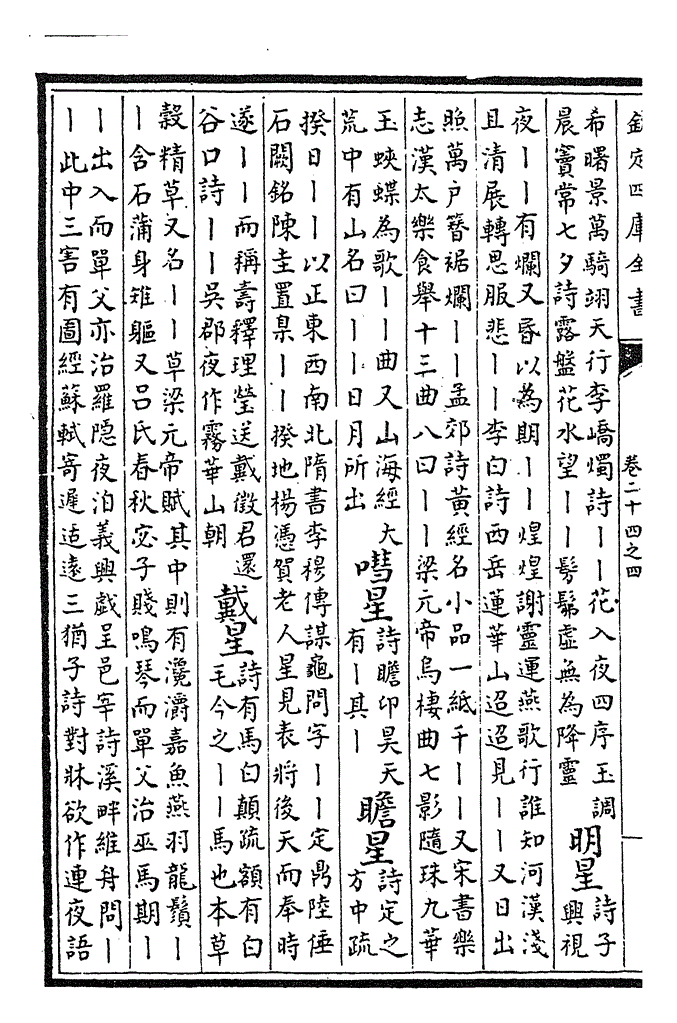 欽定四庫全書 卷二十四之四
希曙景萬騎翊天行李嶠燭詩丨丨花入夜四序玉調
晨竇常七夕詩露盤花水望丨丨髣髴虛無為降靈
明星
詩子
興視
夜丨丨有爛又昏以為期丨丨煌煌謝靈運燕歌行誰知河漢淺
且清展轉思服悲丨丨李白詩西岳蓮華山迢迢見丨丨又日出
照萬户簪裾爛丨丨孟郊詩黃經名小品一紙千丨丨又宋書樂
志漢太樂食舉十三曲八曰丨丨梁元帝烏棲曲七影隨珠九華
玉蛺蝶為歌丨丨曲又山海經大
荒中有山名曰丨丨日月所出
嘒星
詩瞻卬昊天
有丨其丨
瞻星
詩定之
方中疏
揆日丨丨丨以正東西南北隋書李穆傳謀龜問字丨丨定鼎陸倕
石闕銘陳圭置臬丨丨揆地楊憑賀老人星見表將後天而奉時
遂丨丨而稱壽釋理瑩送戴徵君還
谷口詩丨丨吳郡夜作霧華山朝
戴星
詩有馬白顛疏額有白
毛今之丨丨馬也本草
榖精草又名丨丨草梁元帝賦其中則有瀺灂嘉魚燕羽龍鬚丨
丨含石蒲身雉軀又吕氏春秋宓子賤鳴琴而單父治巫馬期丨
丨出入而單父亦治羅隱夜泊義興戲呈邑宰詩溪畔維舟問丨
丨此中三害有圖經蘇軾寄遲适遠三猶子詩對牀欲作連夜語